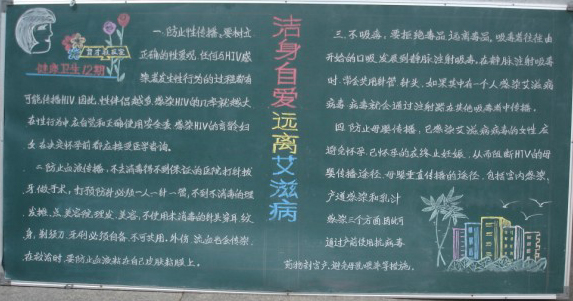 育才教室
健康卫生12期
一、防止性传播。要树立
正确的性爱观,任何与HIV感
染者发生性行为的过程都有
可能传播HIV因此,性伴侣越多,感染HIV的几率就越大
在性行为中应自觉和正确使用安全套,感染HIV的育龄妇
女在决定怀孕前都应接受医学咨询。
二、防止血液传播,不去消毒得不到保证的医院打针拔
牙做手术,打预防针必须一人一针一管,不到不消毒的理
发摊、点、美容院理发、美容,不使用未消毒的针头穿耳纹
身,剃须刀、牙刷必须自备,不可共用。外伤、流血也会传染。
在救治时,要防止血液粘在自己皮肤黏膜上。
洁身自爱远离艾滋病
三、不吸毒。要拒绝毒品,远离毒品,吸毒者往往由
开始的口吸发展到静脉注射吸毒,在静脉注射吸毒
时,常会共用针管、针头,如果其中一个人感染艾滋病
病毒,病毒就会通过注射器在其他吸毒者中传播。
四、防止母婴传播,已感染艾滋病病毒的女性应
避免怀孕,已怀孕的应终止妊娠,从而阻断HIV的母
婴传播途径,母婴垂直传播的途径,包括宫内感染、
产道感染和乳汁
感染三个方面,因此可
通过产前使用抗病毒
药物、剖宫产、避免母乳喂养等措施。